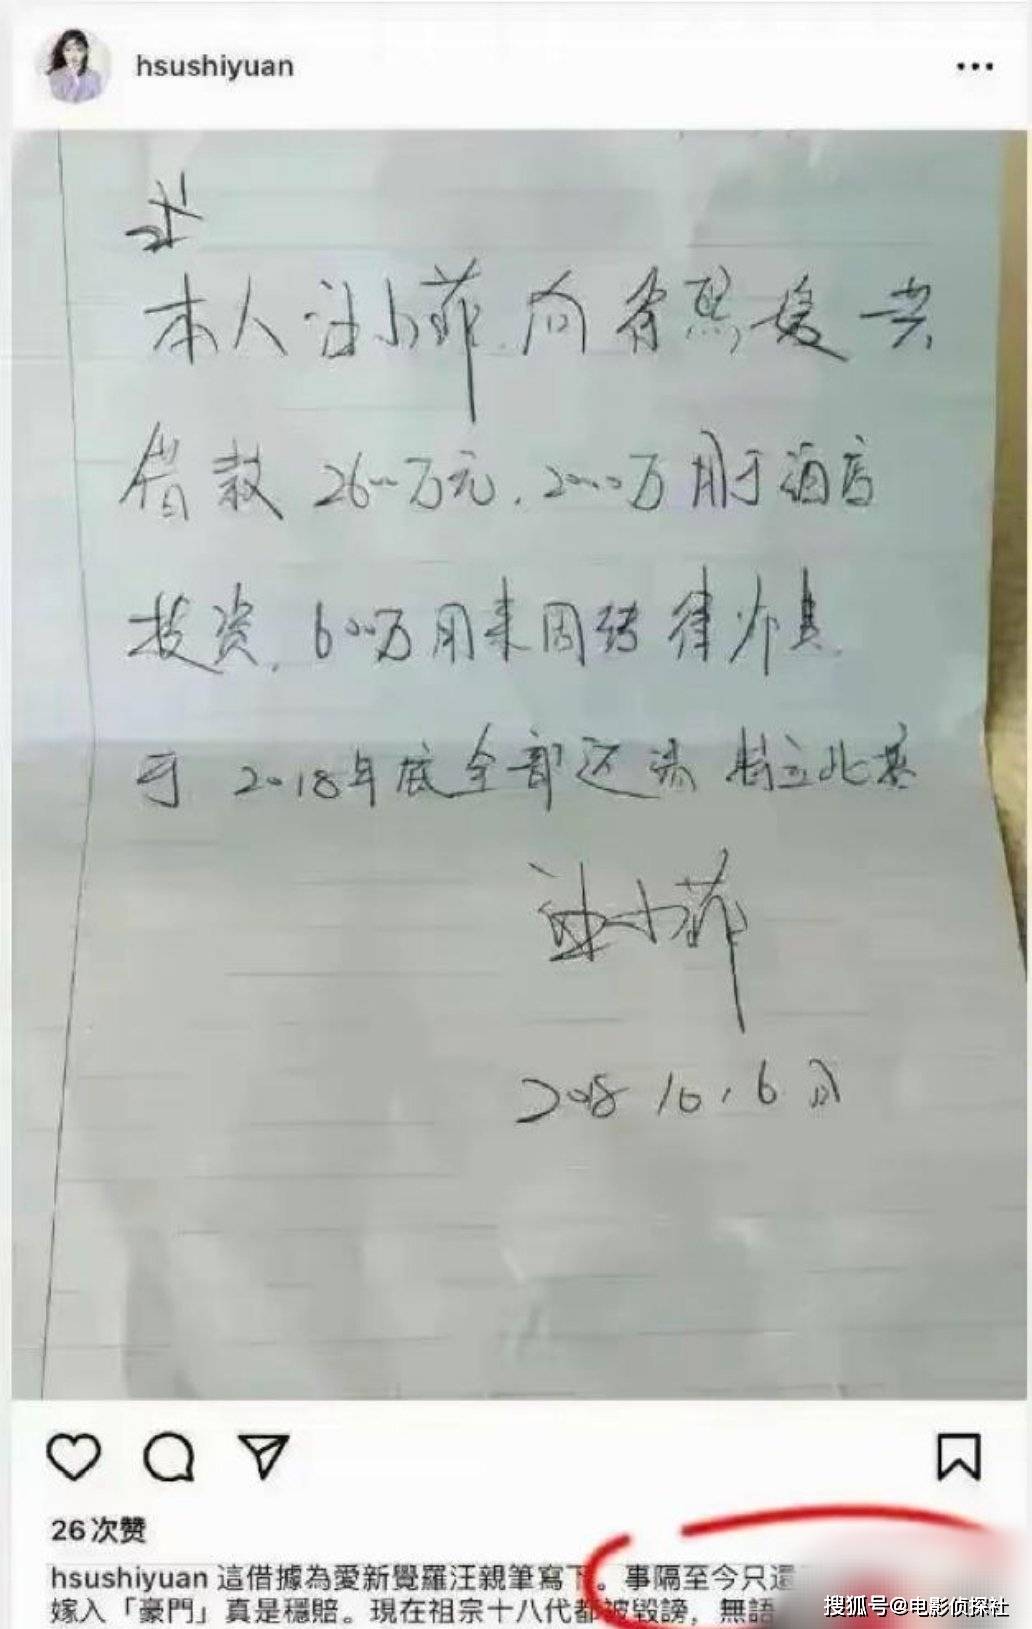 hsushiyuan
本人汪小菲向徐熙媛共
借款2600万元,2000万用于酒店
投资,600万用来周转律师费.
于2018年底全部还清 特立此据
汪小菲
2018 10.6日
26次赞
hsushiyuan 這借據為愛新覺羅汪親筆寫下。事隔至今只還
嫁入「豪門」真是穩賠。現在祖宗十八代都被毀謗，無語
搜狐号@电影侦探社